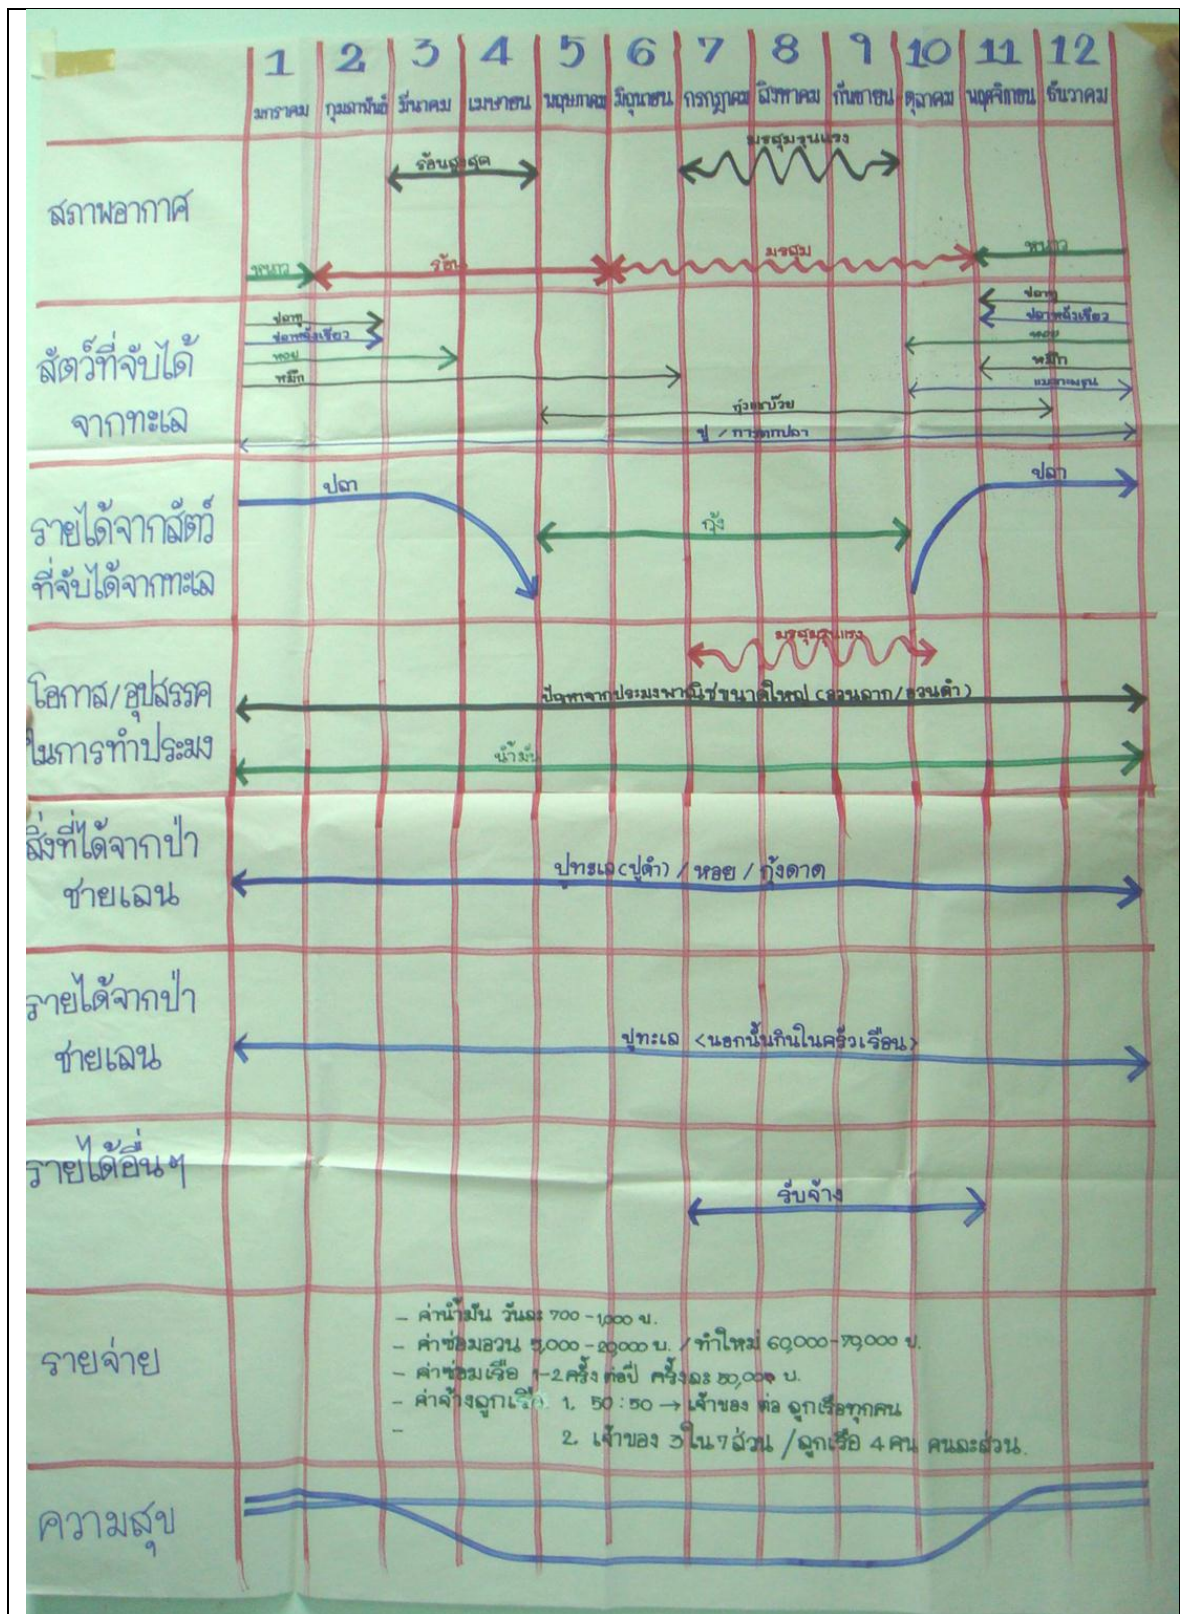 1 2 3 4 5 6 7 8 9 10 11 12
มกราคม กุมภาพันธ์ มีนาคม เมษายน พฤษภาคม มิถุนายน กรกฎาคม สิงหาคม กันยายน ตุลาคม พฤศจิกายน ธันวาคม
สภาพอากาศ
ร้อนสูงสุด มรสุมรุนแรง
หนาว ร้อน มรสุม หนาว
สัตว์ที่จับได้
จากทะเล
ปลาทู ปลาทู
ปลาหลังเขียว ปลาหลังเขียว
หอย หอย
หมึก หมึก
แมงกะพรุน
กุ้งแชบ๊วย
ปู / การตกปลา
รายได้จากสัตว์
ที่จับได้จากทะเล
ปลา กุ้ง ปลา
โอกาส/อุปสรรค
ในการทำประมง
มรสุมรุนแรง
ปัญหาจากประมงพาณิชขนาดใหญ่ (อวนลาก/อวนดำ)
น้ำมัน
สิ่งที่ได้จากป่า
ชายเลน
ปูทะเล(ปูดำ) / หอย / กุ้งดาด
รายได้จากป่า
ชายเลน
ปูทะเล <นอกนั้นกินในครัวเรือน>
รายได้อื่นๆ
รับจ้าง
รายจ่าย
- ค่าน้ำมัน วันละ 700-1,000 บ.
- ค่าซ่อมอวน 5,000-20,000 บ. / ทำใหม่ 60,000-70,000 บ.
- ค่าซ่อมเรือ 1-2 ครั้ง ต่อปี ครั้งละ 50,000 บ.
- ค่าจ้างลูกเรือ 1. 50:50 → เจ้าของ ต่อ ลูกเรือทุกคน
- 2. เจ้าของ 3 ใน 7 ส่วน / ลูกเรือ 4 คน คนละส่วน.
ความสุข